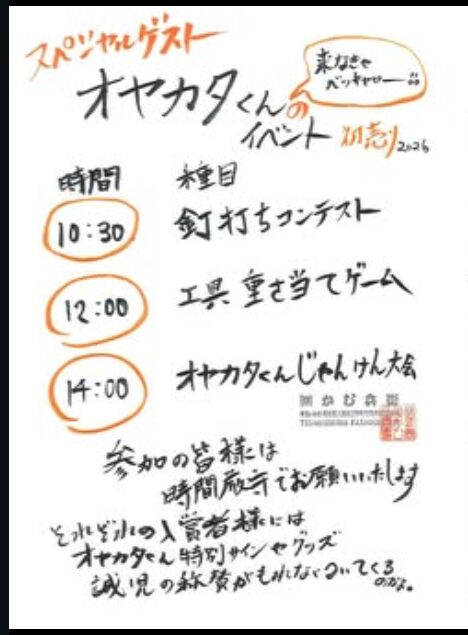 スペシャルゲスト
オヤカタくんの
来なきゃ
ベッキャロー
イベント 初売り2026
時間 種目
10:30 釘打ちコンテスト
12:00 工具重さ当てゲーム
14:00 オヤカタくんじゃんけん大会
参加の皆様は
時間厳守でお願いいたします
それぞれの入賞者様には
オヤカタくん特別サインやグッズ
誠児の称賛がもれなくついてくる
のだよ。